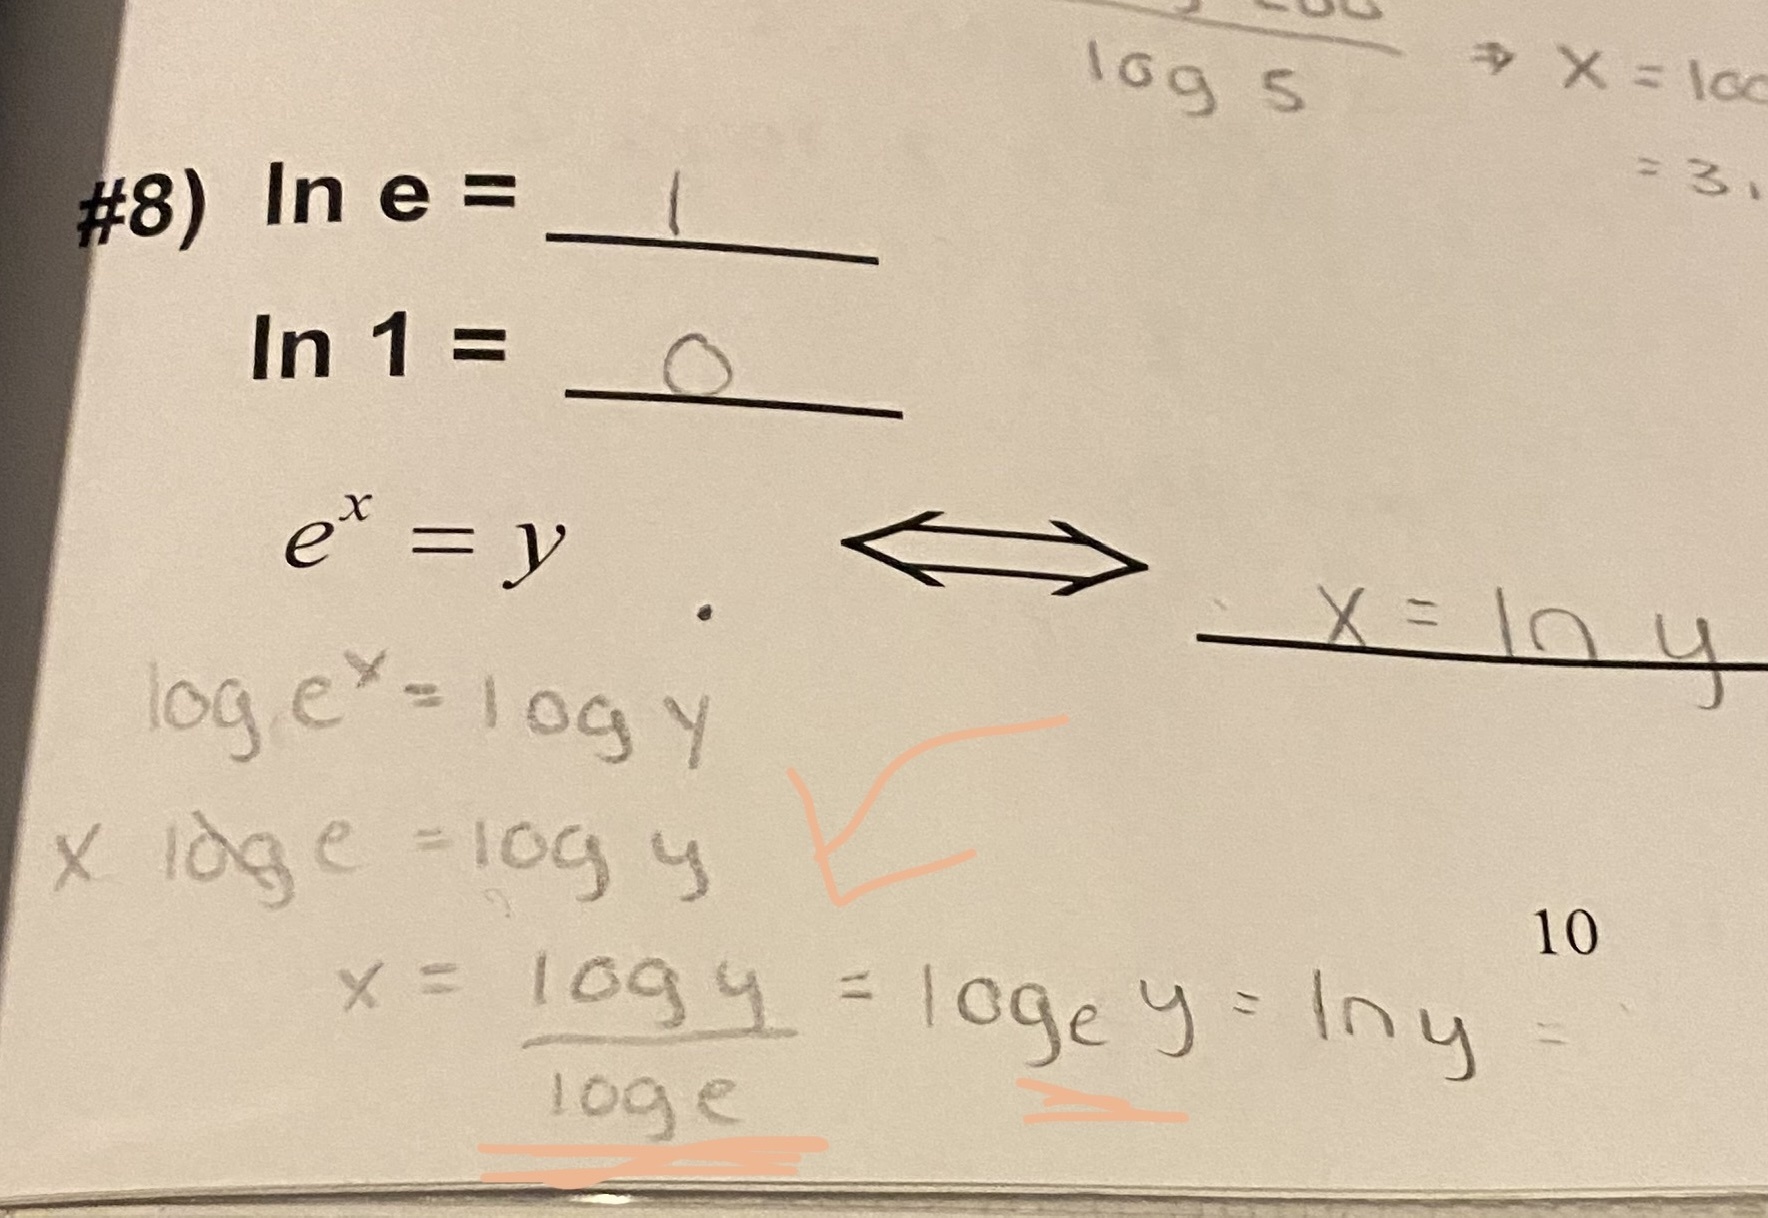 log 5 ⇒ x = log
= 3.
#8) ln e = 1
ln 1 = 0
e^x = y ⟺ x = ln y
log e^x = log y
x log e = log y
10
x = log y / log e = log_e y = ln y =